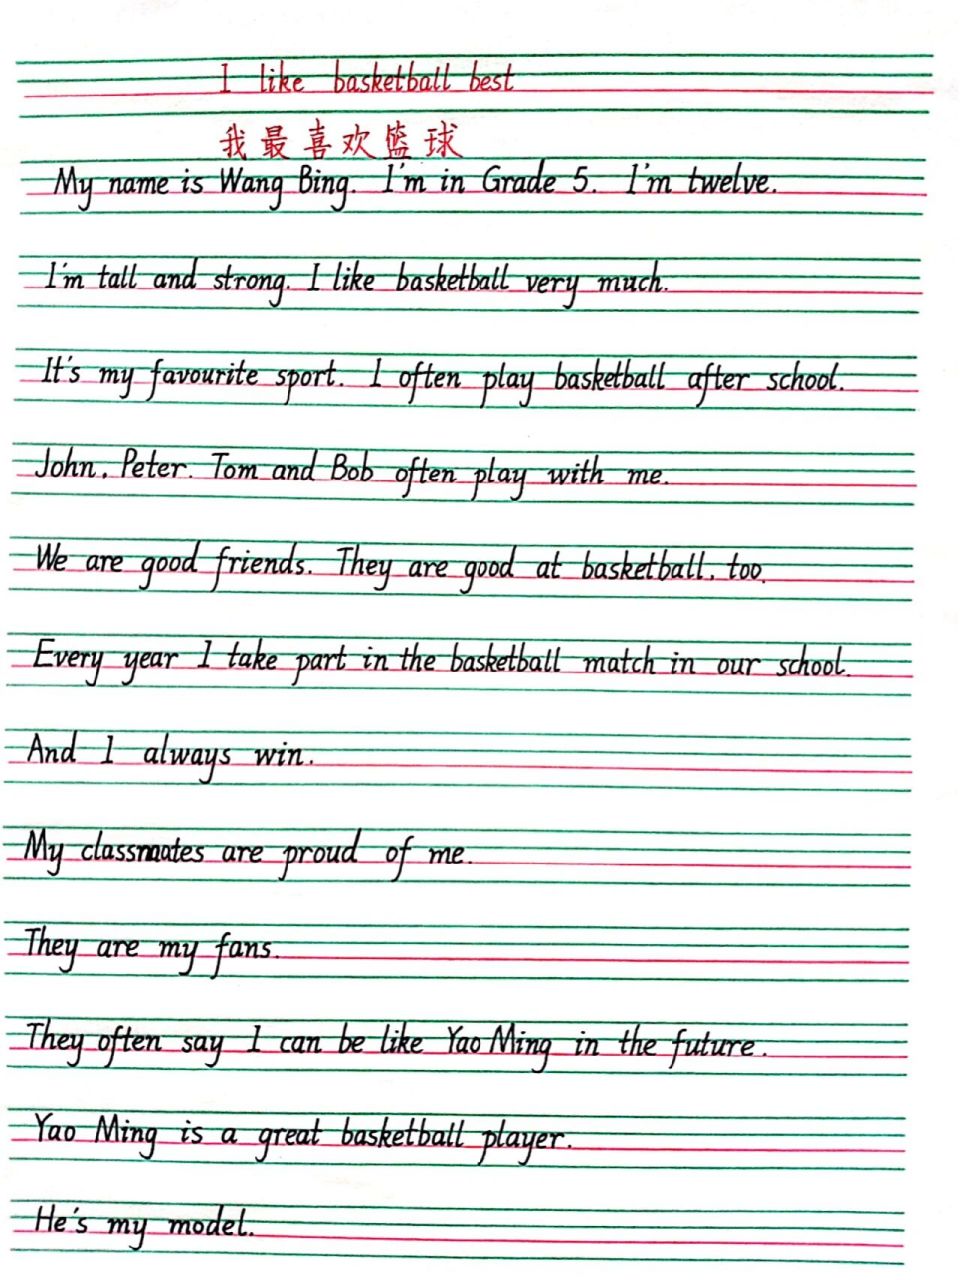 I like basketball best
我最喜欢篮球
My name is Wang Bing. I'm in Grade 5. I'm twelve.
I'm tall and strong. I like basketball very much.
It's my favourite sport. I often play basketball after school.
John. Peter. Tom and Bob often play with me.
We are good friends. They are good at basketball. too.
Every year I take part in the basketball match in our school.
And I always win.
My classmates are proud of me.
They are my fans.
They often say I can be like Yao Ming in the future.
Yao Ming is a great basketball player.
He's my model.